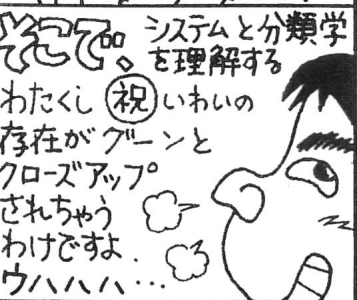 そこで、
システムと分類学
を理解する
わたくし祝いわいの
存在がグーンと
クローズアップ
されちゃう
わけですよ.
ウハハハ…